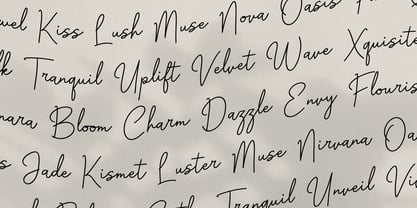 Kiss Lush Muse Nova Oasis
Tranquil Uplift Velvet Wave Xquisite
Bloom Charm Dazzle Envy Flouris
Jade Kismet Luster Muse Nirvana Oa
Tranquil Unveil